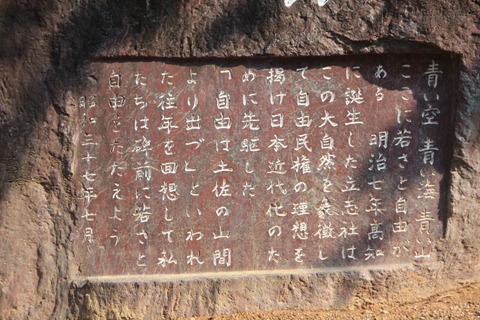 青い空 青い海 青い山
ここに若さと自由が
ある 明治七年高知
に誕生した立志社は
この大自然を象徴し
て自由民権の理想を
掲げ日本近代化のた
めに先駆した
「自由は土佐の山間
より出づ」といわれ
た往年を回想して私
たちは碑前に若さと
自由をたたえよう
昭和三十七年七月